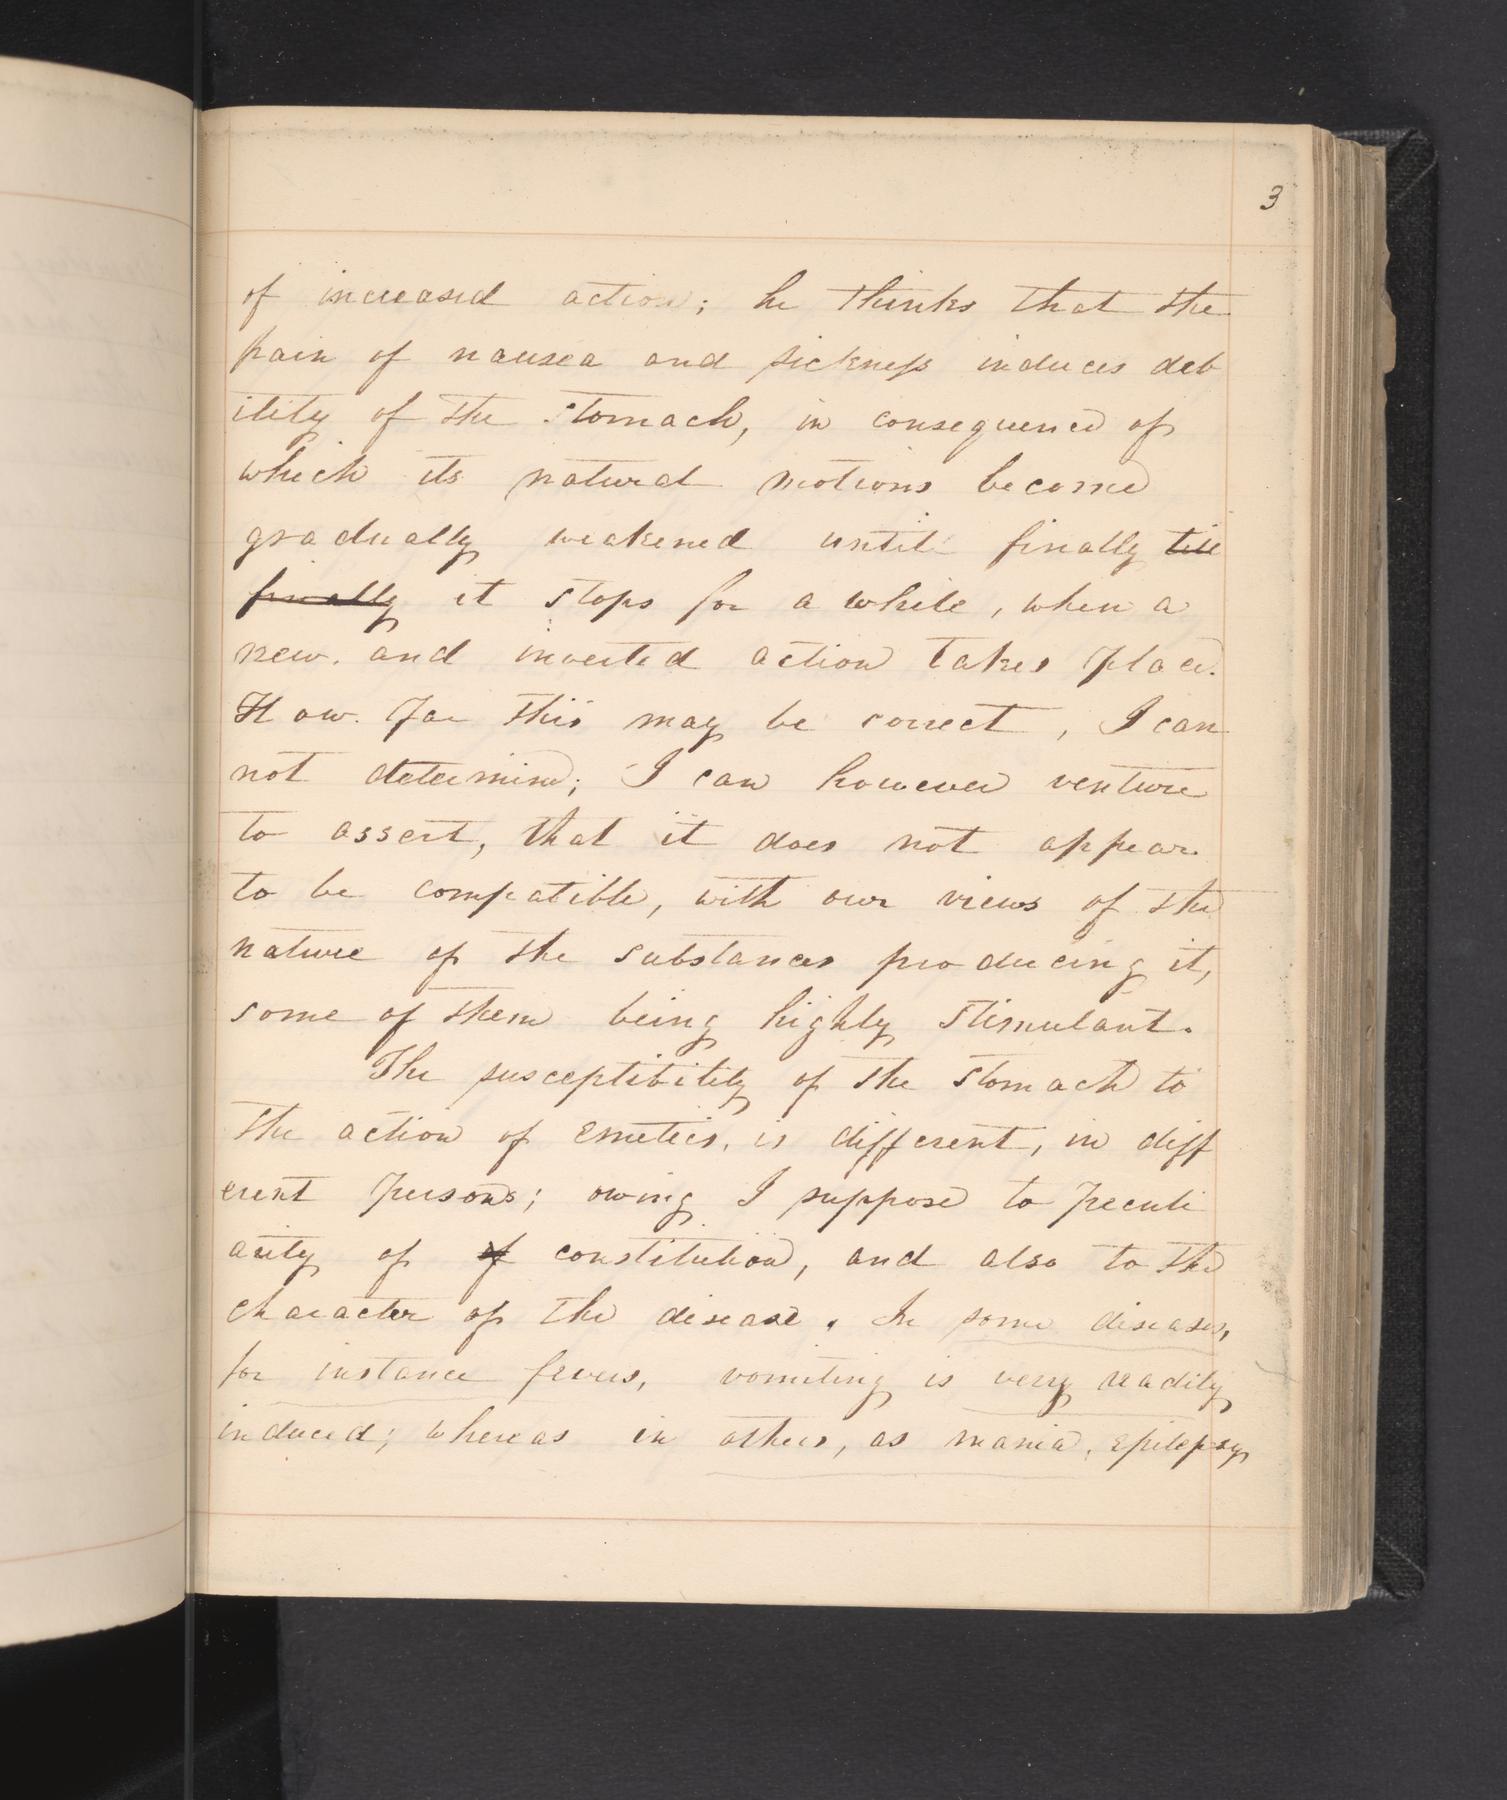 3
of increased action; he thinks that the
pain of nausea and sickness induces deb
ility of the stomach, in consequence of
which its natural motions become
gradually weakened until finally till
finally it stops for a while, when a
new. and inverted action takes place.
How far this may be correct, I can
not determine; I can however venture
to assert, that it does not appear
to be compatible, with our views of the
nature of the substances producing it,
some of them being highly stimulant.
The susceptibility of the stomach to
the action of emetics, is different, in diff
erent persons; owing I suppose to peculi
arity of of constitution, and also to the
character of the disease. In some diseases,
for instance fevers, vomiting is very readily
induced; whereas in others, as mania, epilepsy